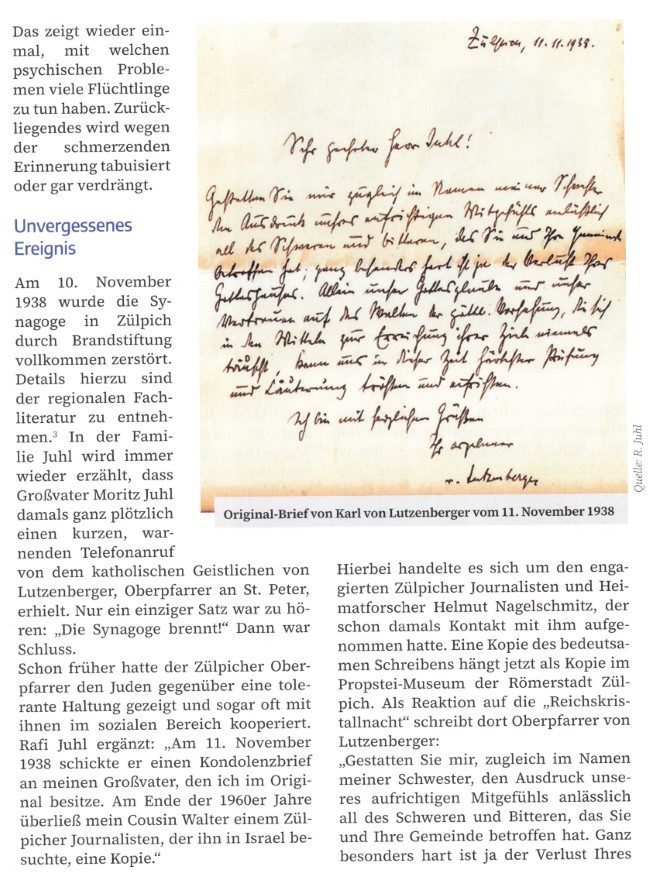 Das zeigt wieder ein-
mal, mit welchen
psychischen Proble-
men viele Flüchtlinge
zu tun haben. Zurück-
liegendes wird wegen
der schmerzenden
Erinnerung tabuisiert
oder gar verdrängt.
Unvergessenes
Ereignis
Am 10. November
1938 wurde die Sy-
nagoge in Zülpich
durch Brandstiftung
vollkommen zerstört.
Details hierzu sind
der regionalen Fach-
literatur zu entneh-
men.³ In der Fami-
lie Juhl wird immer
wieder erzählt, dass
Großvater Moritz Juhl
damals ganz plötzlich
einen kurzen, war-
nenden Telefonanruf
von dem katholischen Geistlichen von
Lutzenberger, Oberpfarrer an St. Peter,
erhielt. Nur ein einziger Satz war zu hö-
ren: „Die Synagoge brennt!“ Dann war
Schluss.
Schon früher hatte der Zülpicher Ober-
pfarrer den Juden gegenüber eine tole-
rante Haltung gezeigt und sogar oft mit
ihnen im sozialen Bereich kooperiert.
Rafi Juhl ergänzt: „Am 11. November
1938 schickte er einen Kondolenzbrief
an meinen Großvater, den ich im Origi-
nal besitze. Am Ende der 1960er Jahre
überließ mein Cousin Walter einem Zül-
picher Journalisten, der ihn in Israel be-
suchte, eine Kopie.“
Zülpich, 11.11.1938.
Sehr geehrter Herr Juhl!
Gestatten Sie mir zugleich im Namen meiner Schwester
den Ausdruck unsres aufrichtigen Mitgefühls anläßlich
all des Schweren und bitteren, das Sie und Ihre Gemeinde
betroffen hat; ganz besonders hart ist ja der Verlust Ihres
Gotteshauses. Allein unser Gottesglaube und unser
Vertrauen auf das Walten der göttl. Vorsehung, die sich
in den Mitteln zur Erreichung ihrer Ziele niemals
täuscht, kann uns in dieser Zeit härtester Prüfung
und Läuterung trösten und aufrichten.
Ich bin mit herzlichen Grüßen
Ihr ergebener
v. Lutzenberger
Quelle: R. Juhl
Original-Brief von Karl von Lutzenberger vom 11. November 1938
Hierbei handelte es sich um den enga-
gierten Zülpicher Journalisten und Hei-
matforscher Helmut Nagelschmitz, der
schon damals Kontakt mit ihm aufge-
nommen hatte. Eine Kopie des bedeutsa-
men Schreibens hängt jetzt als Kopie im
Propstei-Museum der Römerstadt Zül-
pich. Als Reaktion auf die „Reichskris-
tallnacht“ schreibt dort Oberpfarrer von
Lutzenberger:
„Gestatten Sie mir, zugleich im Namen
meiner Schwester, den Ausdruck unse-
res aufrichtigen Mitgefühls anlässlich
all des Schweren und Bitteren, das Sie
und Ihre Gemeinde betroffen hat. Ganz
besonders hart ist ja der Verlust Ihres